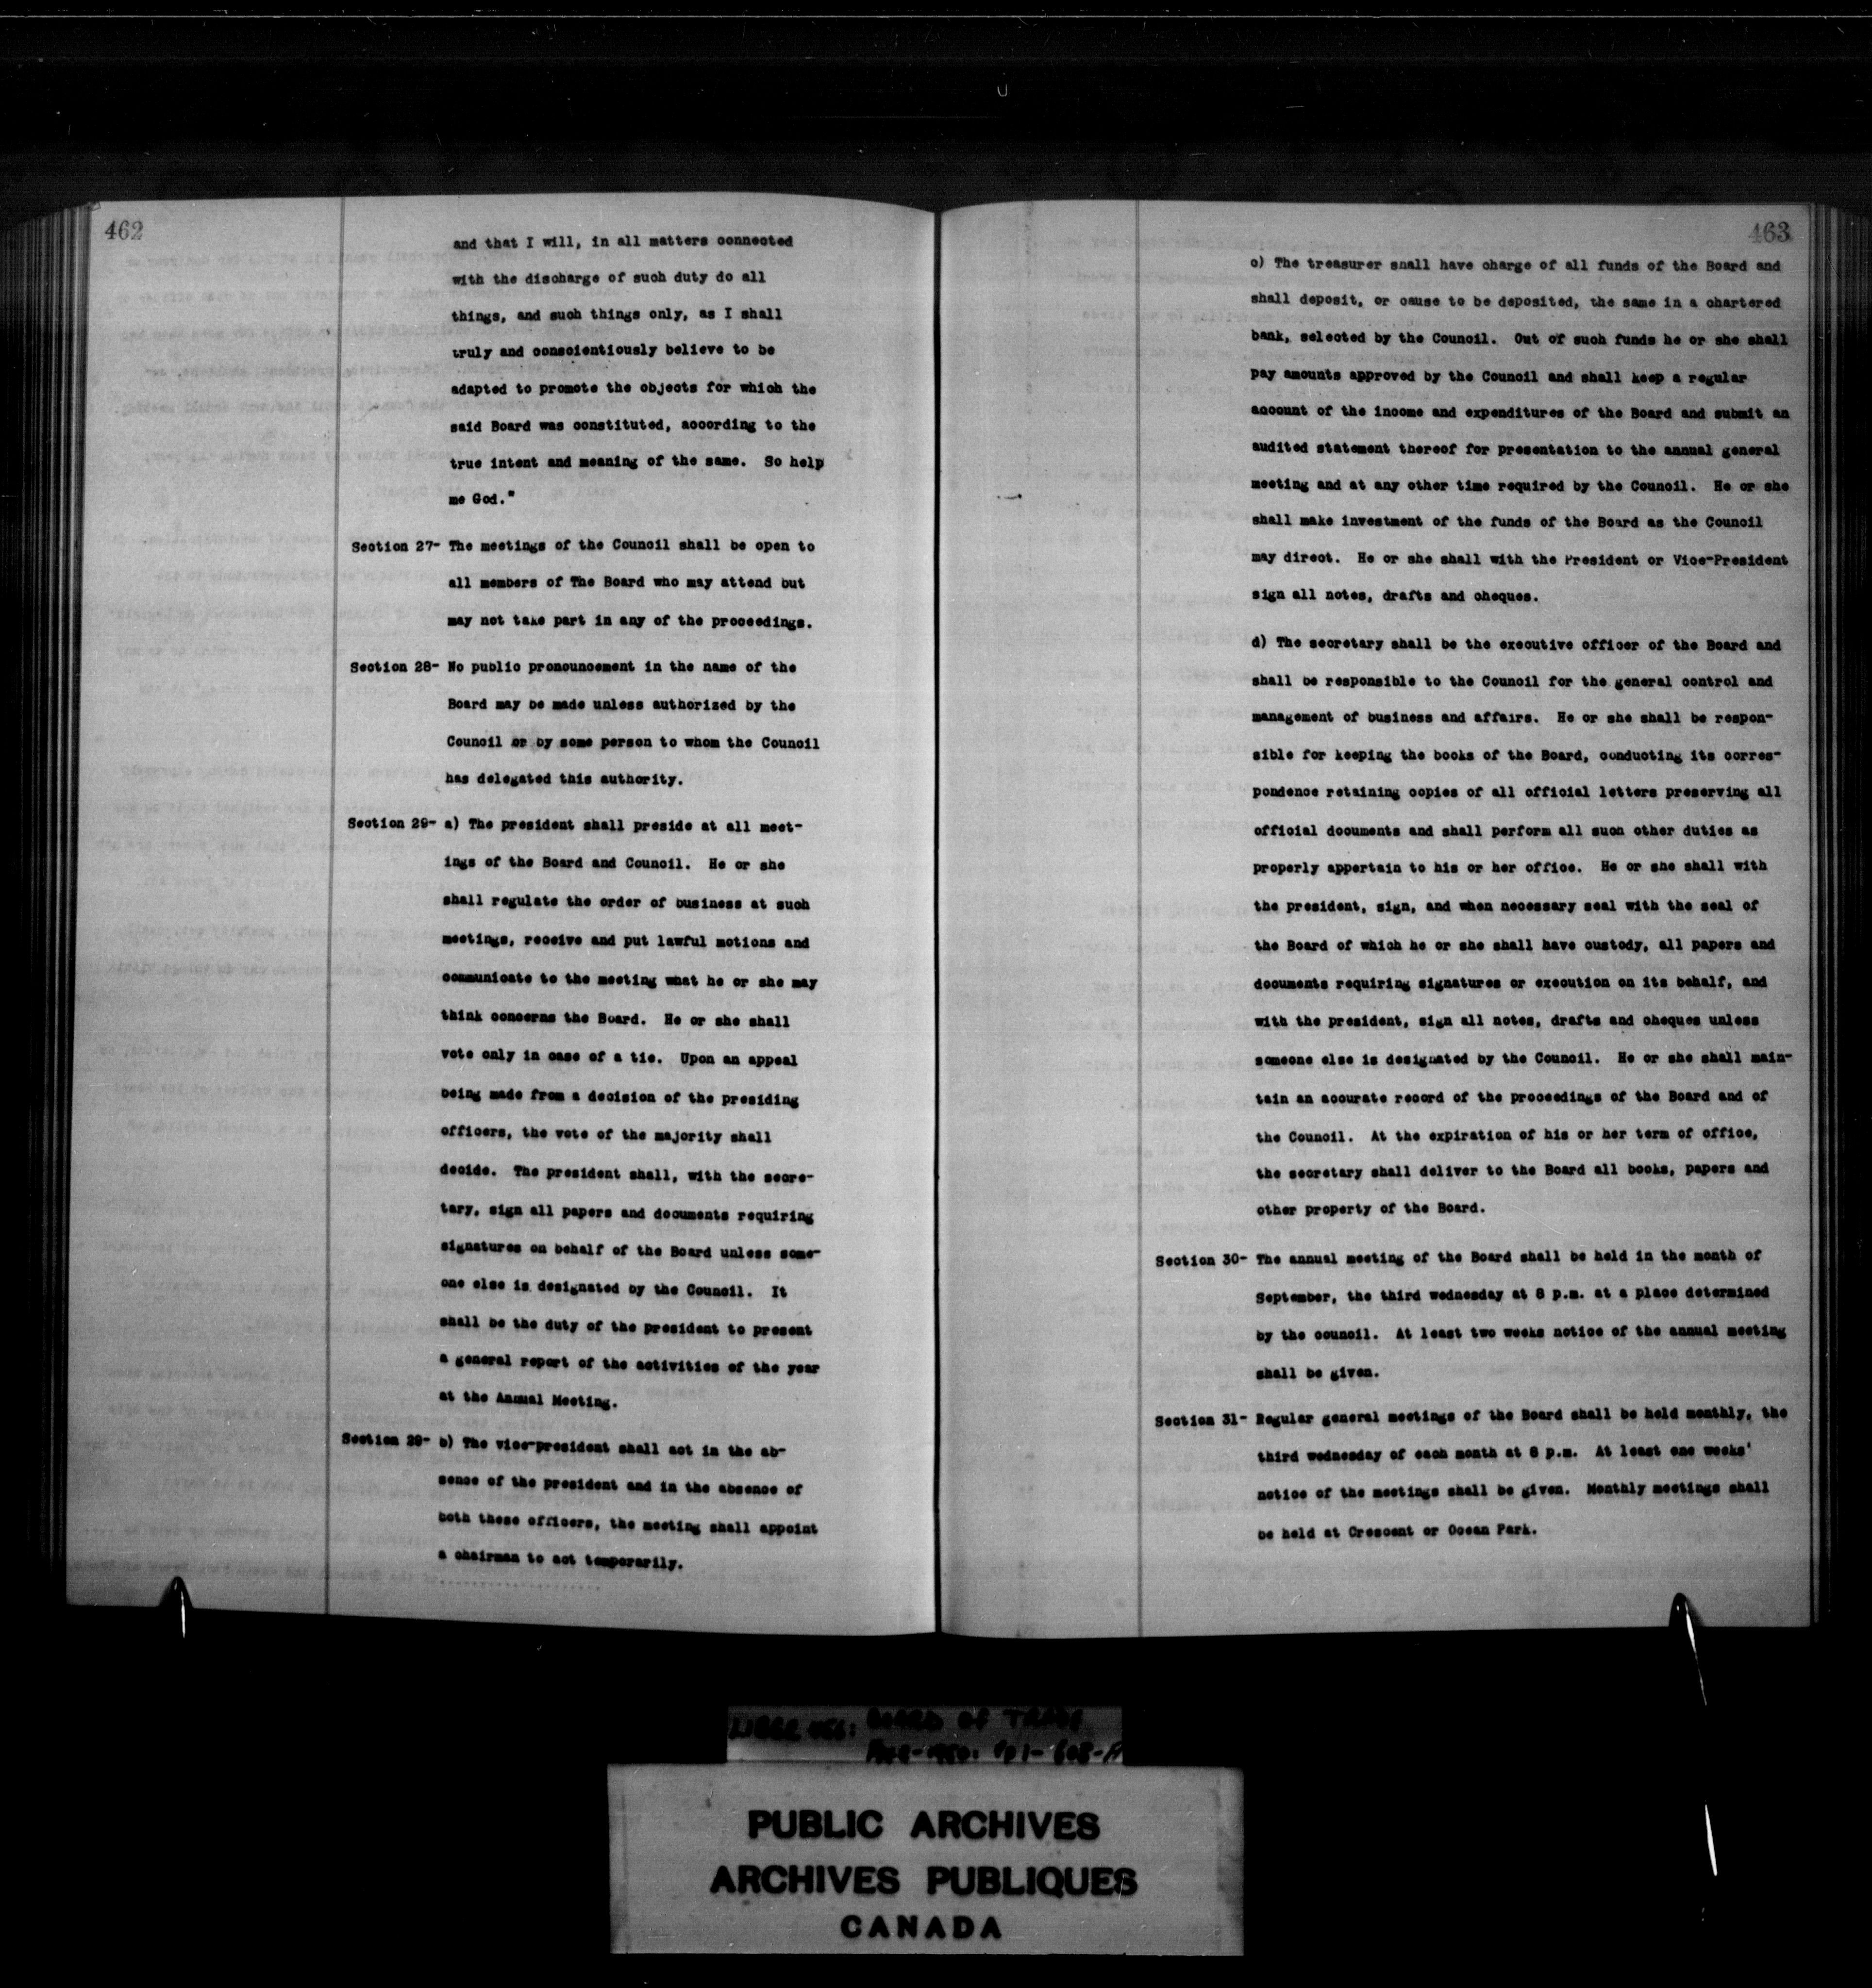 462
and that I will, in all matters connected
with the discharge of such duty do all
things, and such things only, as I shall
truly and conscientiously believe to be
adapted to promote the objects for which the
said Board was constituted, according to the
true intent and meaning of the same. So help
me God."
Section 27- The meetings of the Council shall be open to
all members of The Board who may attend but
may not take part in any of the proceedings.
Section 28- No public pronouncement in the name of the
Board may be made unless authorized by the
Council or by some person to whom the Council
has delegated this authority.
Section 29- a) The president shall preside at all meet-
ings of the Board and Council. He or she
shall regulate the order of business at such
meetings, receive and put lawful motions and
communicate to the meeting what he or she may
think concerns the Board. He or she shall
vote only in case of a tie. Upon an appeal
being made from a decision of the presiding
officers, the vote of the majority shall
decide. The president shall, with the secre-
tary, sign all papers and documents requiring
signatures on behalf of the Board unless some-
one else is designated by the Council. It
shall be the duty of the president to present
a general report of the activities of the year
at the Annual Meeting.
Section 29- b) The vice-president shall act in the ab-
sence of the president and in the absence of
both these officers, the meeting shall appoint
a chairman to act temporarily.
463
c) The treasurer shall have charge of all funds of the Board and
shall deposit, or cause to be deposited, the same in a chartered
bank, selected by the Council. Out of such funds he or she shall
pay amounts approved by the Council and shall keep a regular
account of the income and expenditures of the Board and submit an
audited statement thereof for presentation to the annual general
meeting and at any other time required by the Council. He or she
shall make investment of the funds of the Board as the Council
may direct. He or she shall with the President or Vice-President
sign all notes, drafts and cheques.
d) The secretary shall be the executive officer of the Board and
shall be responsible to the Council for the general control and
management of business and affairs. He or she shall be respon-
sible for keeping the books of the Board, conducting its corres-
pondence retaining copies of all official letters preserving all
official documents and shall perform all such other duties as
properly appertain to his or her office. He or she shall with
the president, sign, and when necessary seal with the seal of
the Board of which he or she shall have custody, all papers and
documents requiring signatures or execution on its behalf, and
with the president, sign all notes, drafts and cheques unless
someone else is designated by the Council. He or she shall main-
tain an accurate record of the proceedings of the Board and of
the Council. At the expiration of his or her term of office,
the secretary shall deliver to the Board all books, papers and
other property of the Board.
Section 30- The annual meeting of the Board shall be held in the month of
September, the third wednesday at 8 p.m. at a place determined
by the council. At least two weeks notice of the annual meeting
shall be given.
Section 31- Regular general meetings of the Board shall be held monthly, the
third wednesday of each month at 8 p.m. At least one weeks'
notice of the meetings shall be given. Monthly meetings shall
be held at Crescent or Ocean Park.
BOARD OF TRADE
PUBLIC ARCHIVES
ARCHIVES PUBLIQUES
CANADA